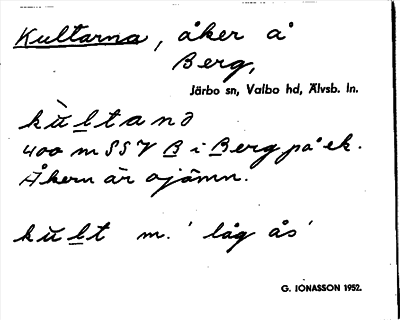 Kultarna, åker å
Berg,
Järbo sn, Valbo hd, Älvsb. ln.
kùltand
400 m SSV B i Berg på ek.
Åkern är ojämn.
kult m. 'låg ås'
G. JONASSON 1952.